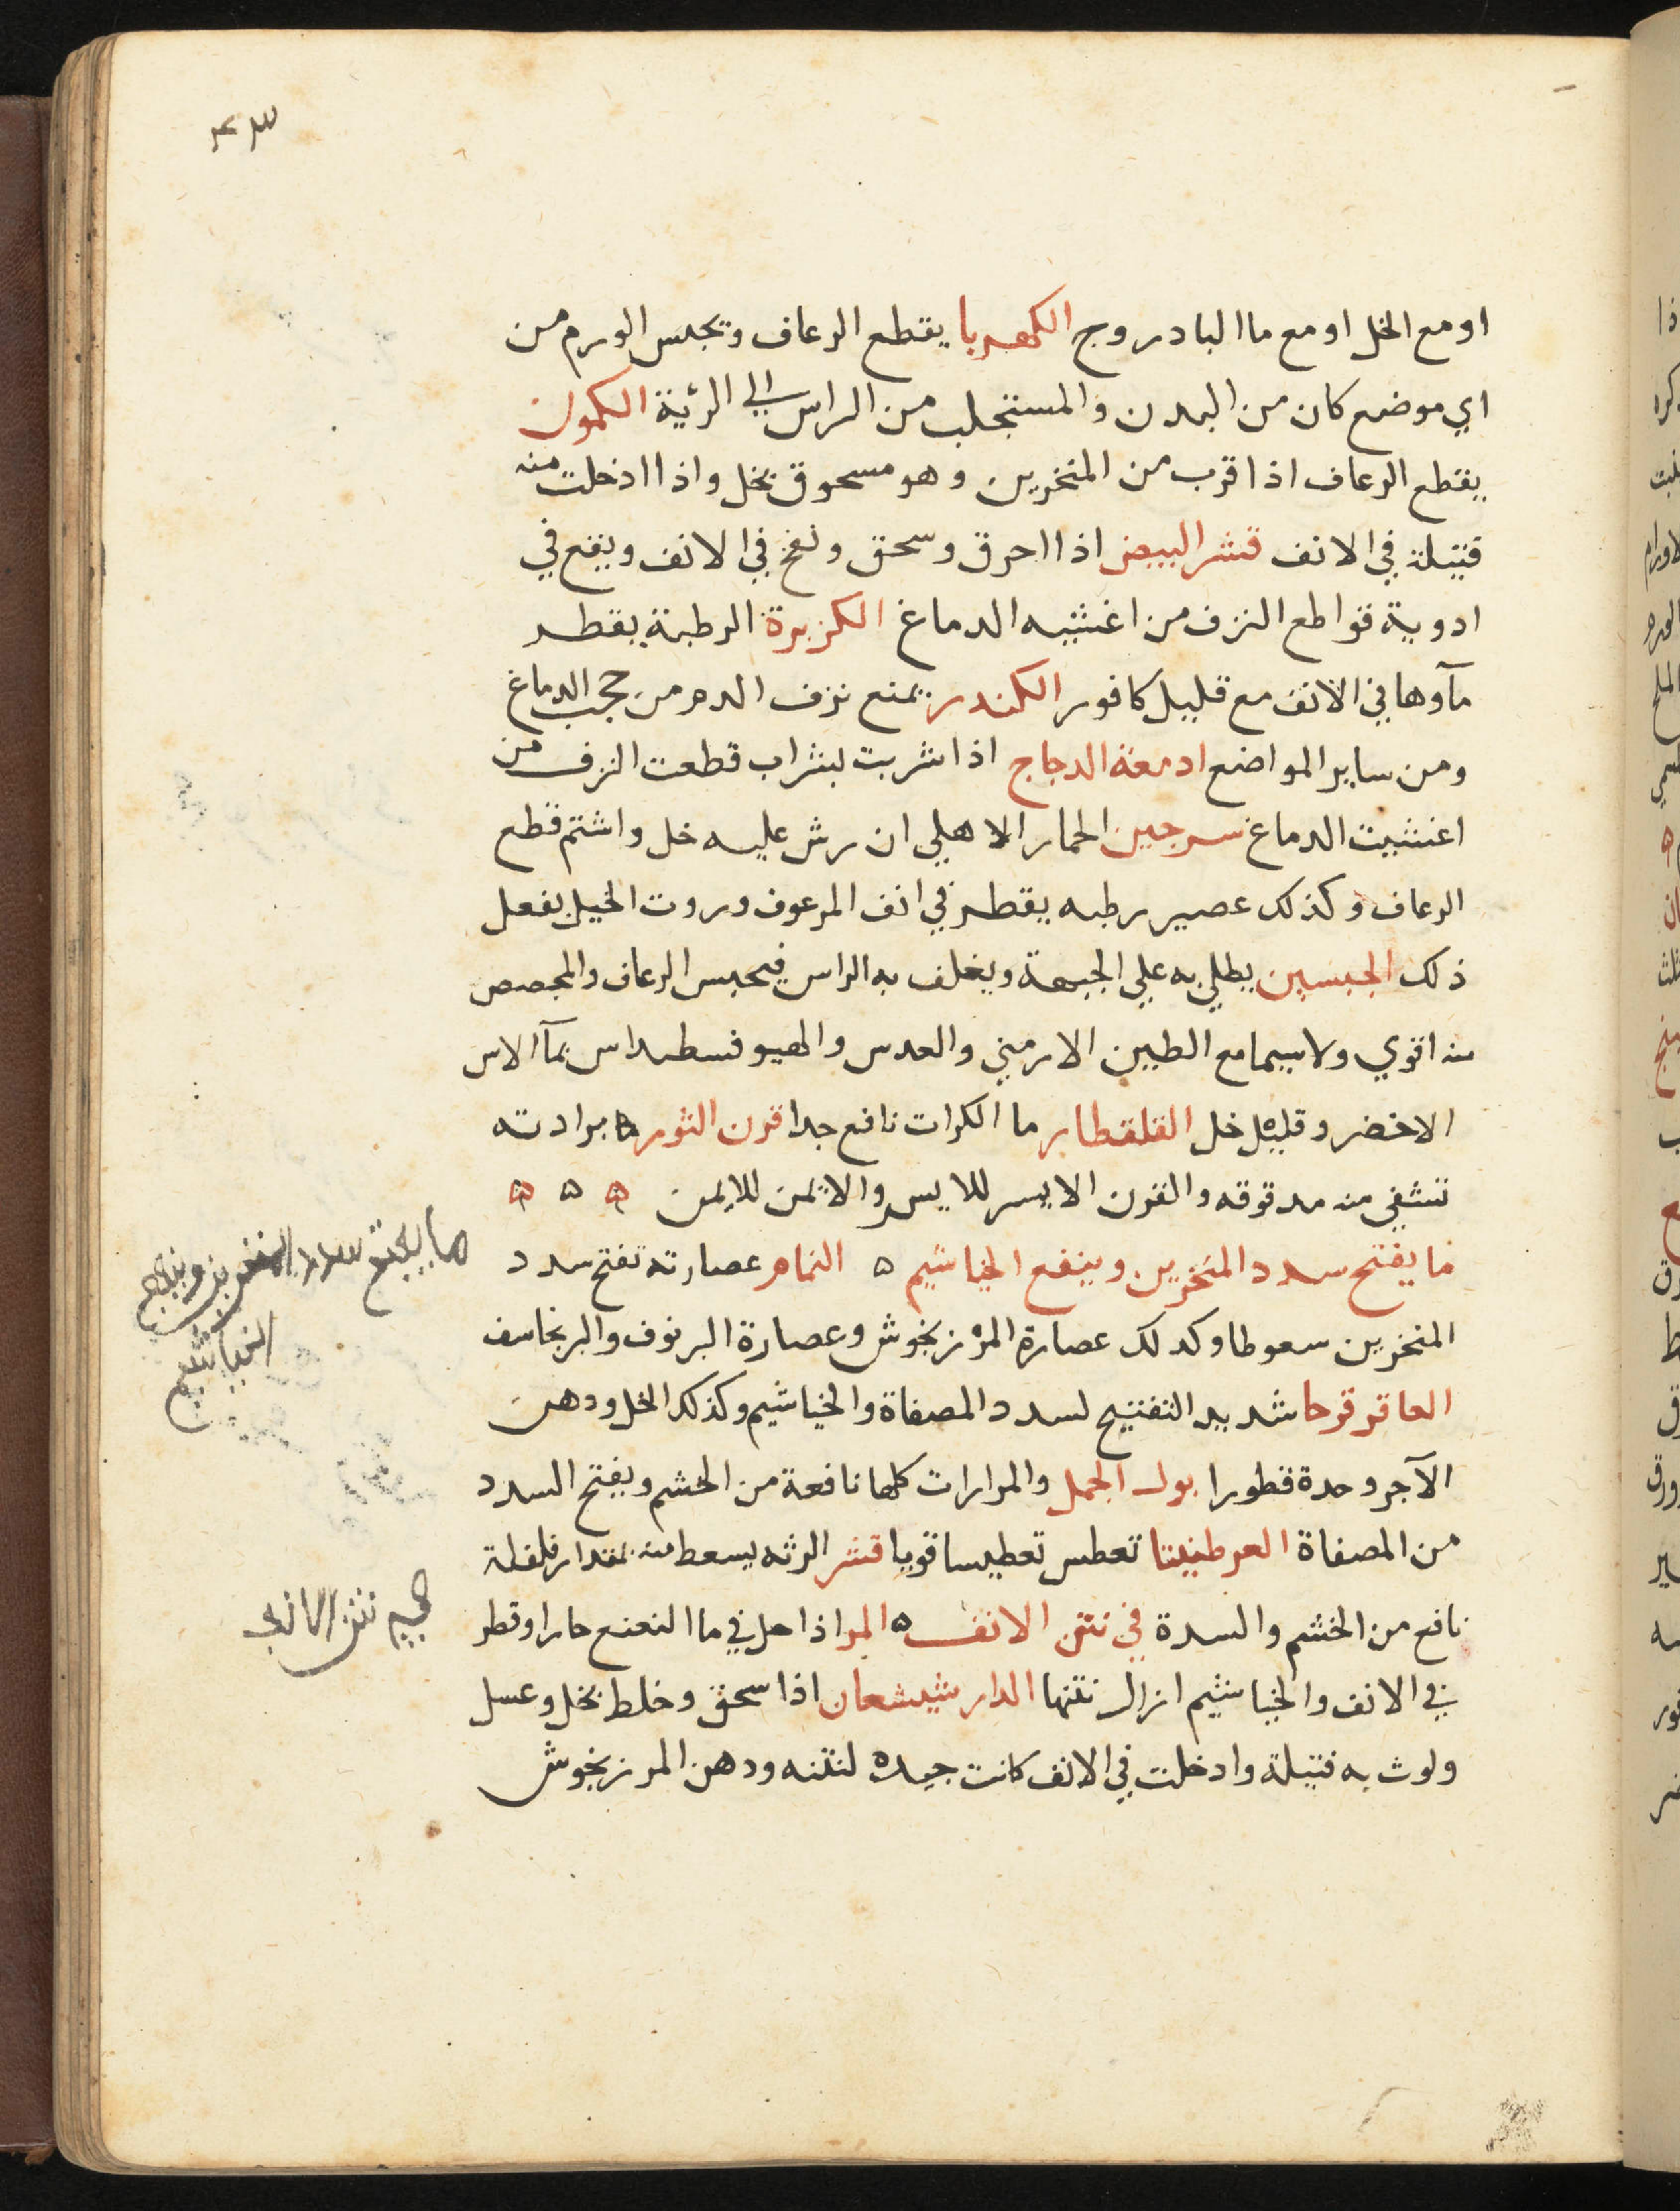 او مع الخل او مع ما البادروج الكهربا يقطع الرعاف ويحبس الورم من
اي موضع كان من البدن والمستجلب من الراس الي الرئية الكمون
يقطع الرعاف اذا قرب من المنخرين وهو مسحوق بخل واذا ادخلت منه
فتيلة في الانف قشر البيض اذا احرق وسحق ونفخ في الانف ويقع في
ادوية قواطع النزف من اغشيه الدماغ الكزبرة الرطبة يقطر
مآوها في الانف مع قليل كافور الكندر يمنع نزف الدم من حجب الدماغ
ومن ساير المواضع ادمغة الدجاج اذا شربت بشراب قطعت النزف من
اغشيت الدماغ سرجين الحمار الاهلي ان رش عليه خل واشتم قطع
الرعاف وكذلك عصير رطبه يقطر في انف المرعوف وروت الخيل يفعل
ذلك الجبسين يطلي به علي الجبهة ويغلف به الراس فيحبس الرعاف والمجصص
منه اقوي ولا سيما مع الطين الارمني والعدس والهيوفسطيداس بمآ الاس
الاخضر وقليل خل القلقطار ما الكرات نافع جدا قرن الثور ه برادته
تنشفي منه مدقوقه والقرن الايسر للايسر والايمن للايمن ه ه ه
ما يفتح سدد المنخرين وينفع الخياشيم ه النمام عصارته تفتح سدد
المنخرين سعوطا وكدلك عصارة المرزنجوش وعصارة البرنوف والبرنجاسف
العاقرقرحا شديد التفتيح لسدد المصفاة والخياشيم وكذلك الخل ودهن
الآجر وحدة قطورا بول الجمل والمرارات كلها نافعة من الخشم ويفتح السدد
من المصفاة العرطنيثا تعطس تعطيسا قويا قشر الرثه يسعط منه بمقدار فلفلة
نافع من الخشم والسدة في نتن الانف ه المر اذا حل في ما النعنع حارا وقطر
في الانف والخياشيم ازال نتنها الدارشيشعان اذا سحق وخلط بخل وعسل
ولوث به فتيلة وادخلت في الانف كانت جيده لنتنه ودهن المرزنجوش
ما يفتح سدد المنخرين وينفع
الخياشيم
نتن الانف